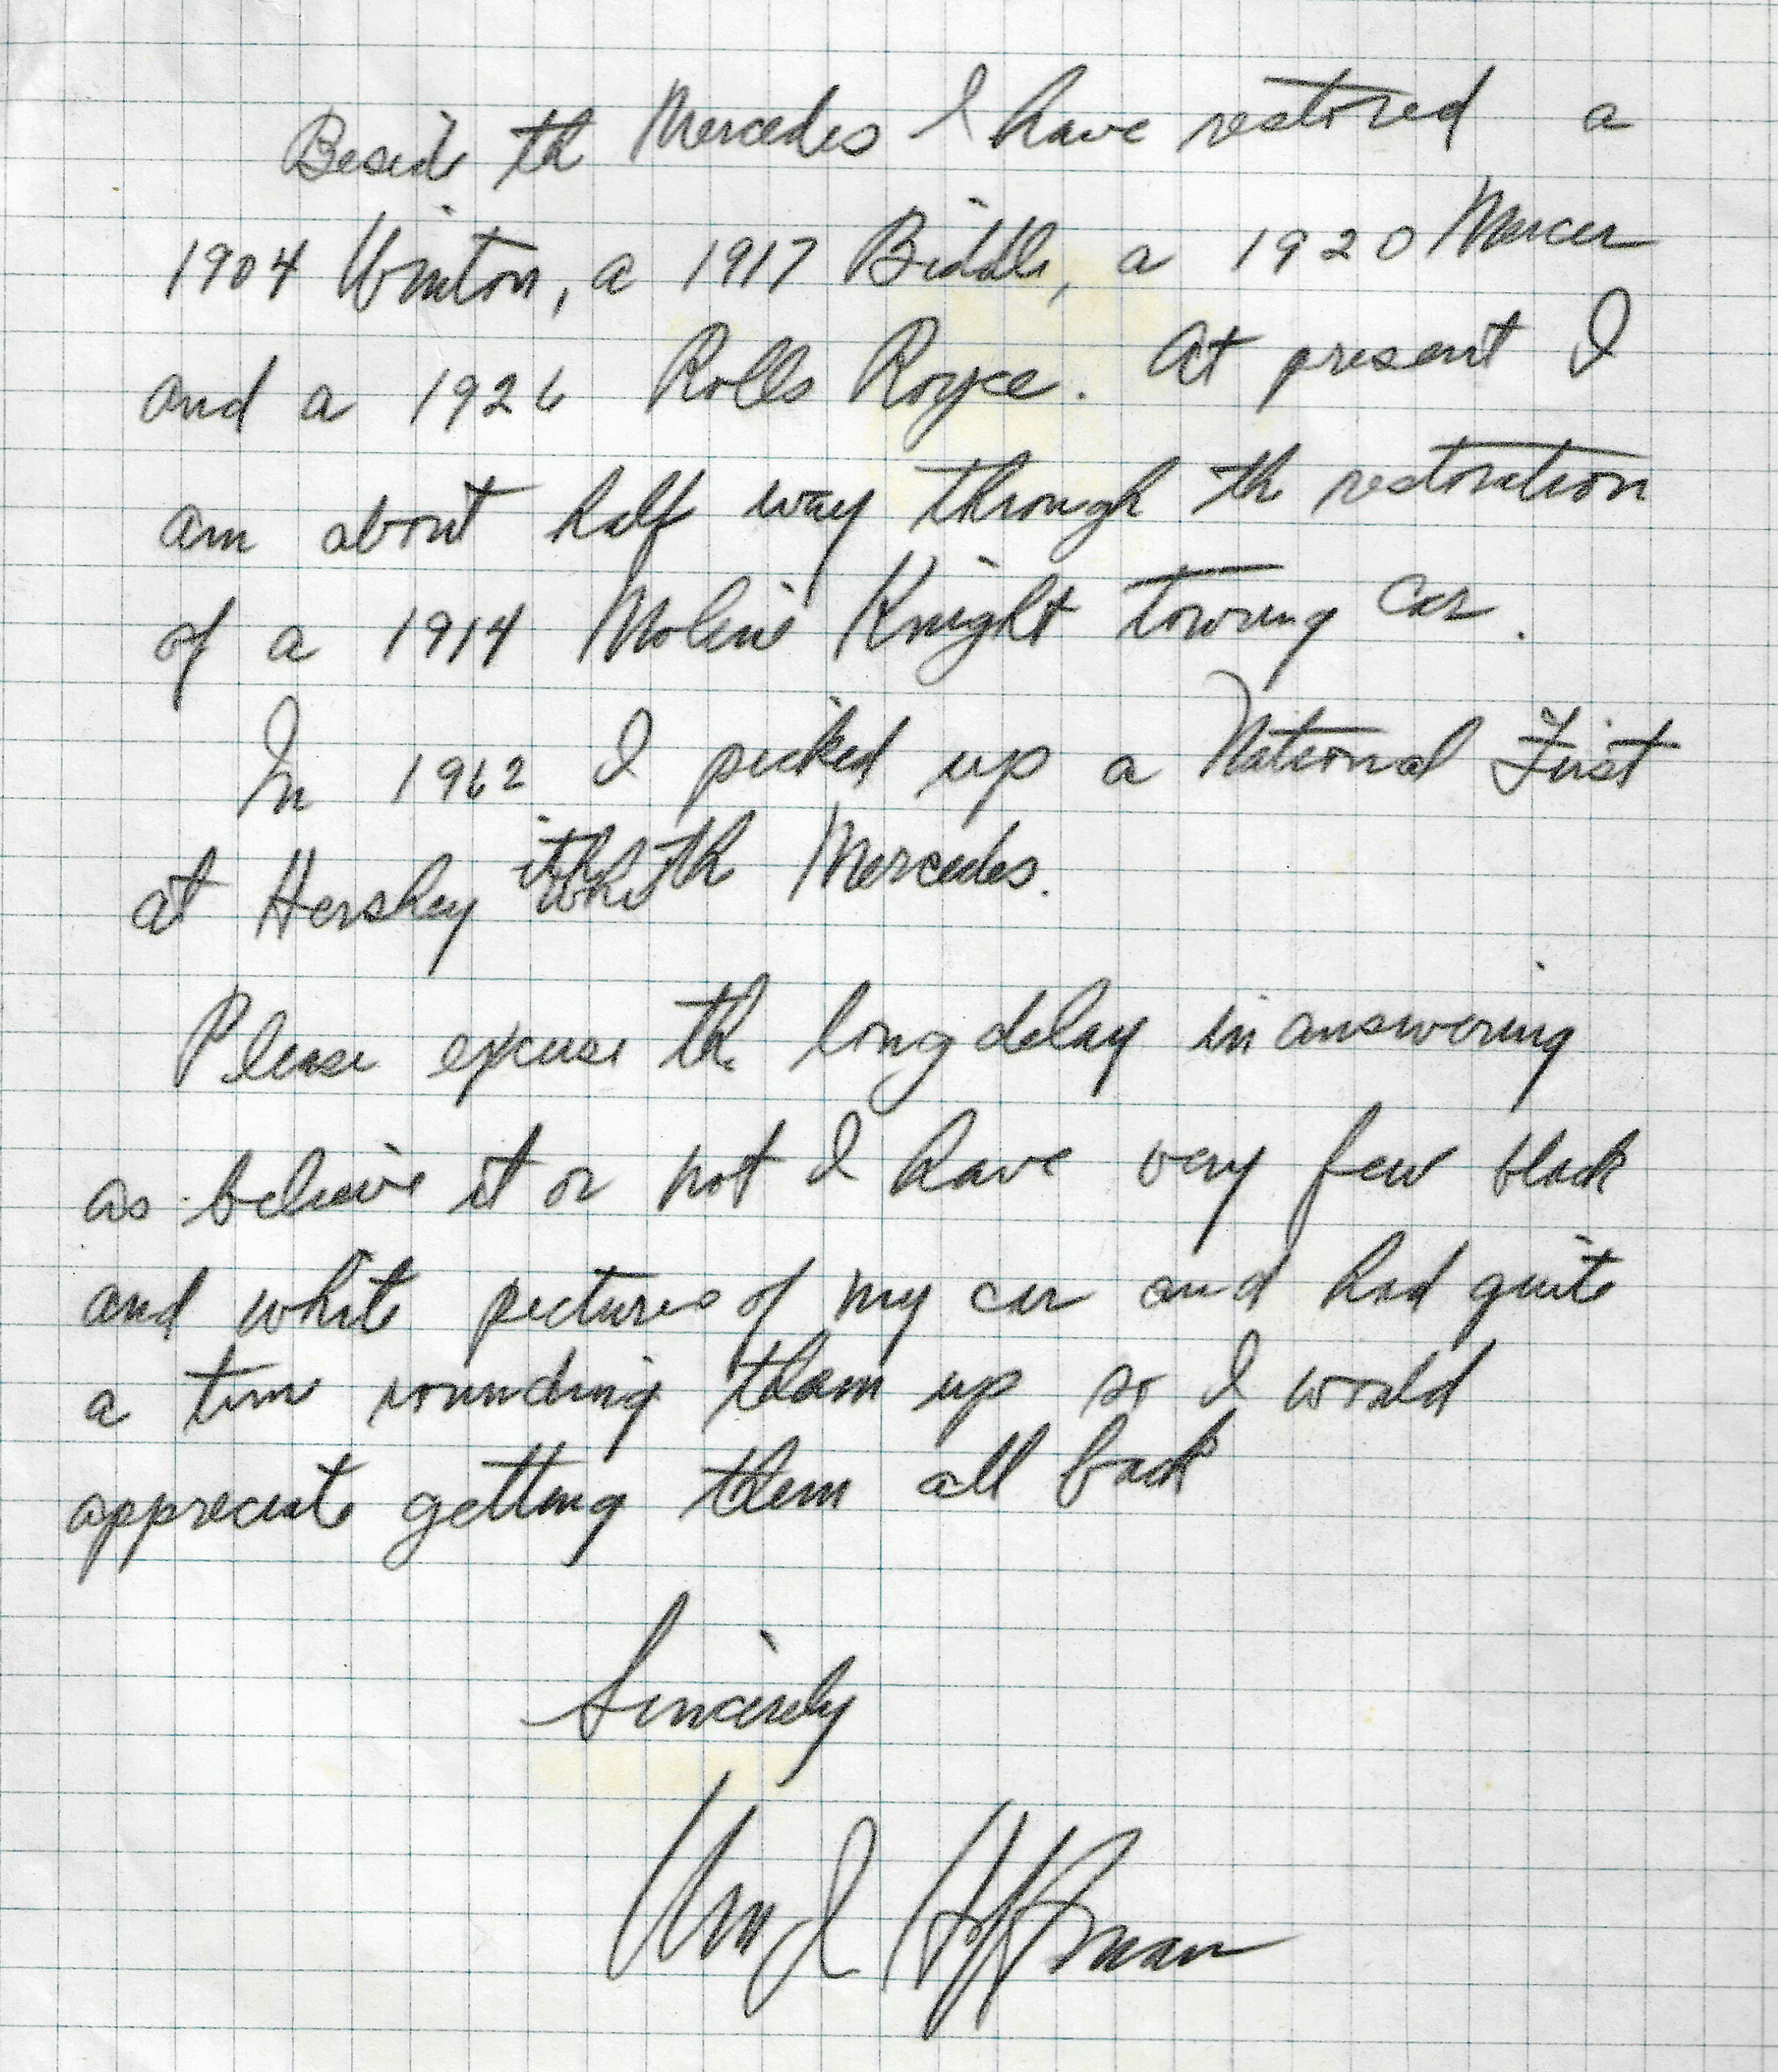 Beside th Mercedes I have restored a
1904 Winton, a 1917 Biddle, a 1920 Mercer
and a 1926 Rolls Royce. At present I
am about half way through th restoration
of a 1914 Moline Knight touring car.
In 1962 I picked up a National First
at Hershey with th Mercedes.
Please excuse th long delay in answering
as believe it or not I have very few black
and white pictures of my car and had quite
a time rounding them up so I would
appreciate getting them all back
Sincerely
Hoffman